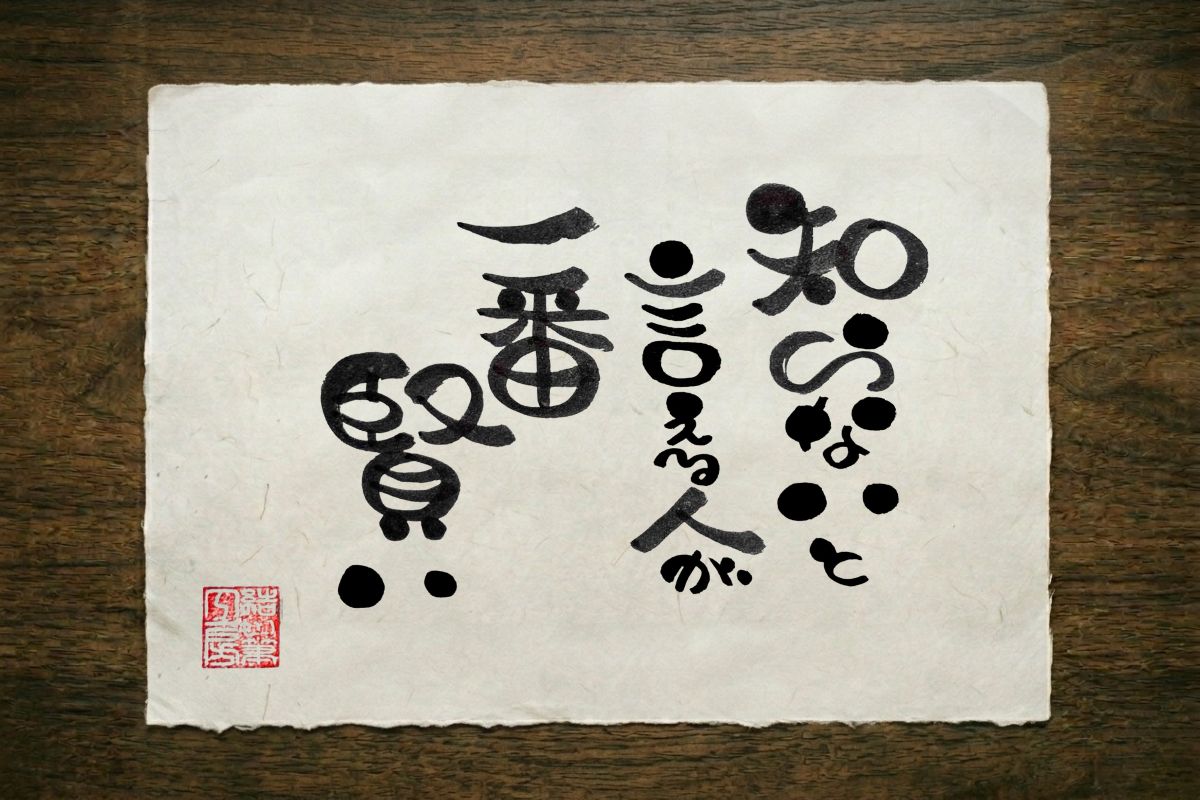 知らないと
言える人が
一番
賢い